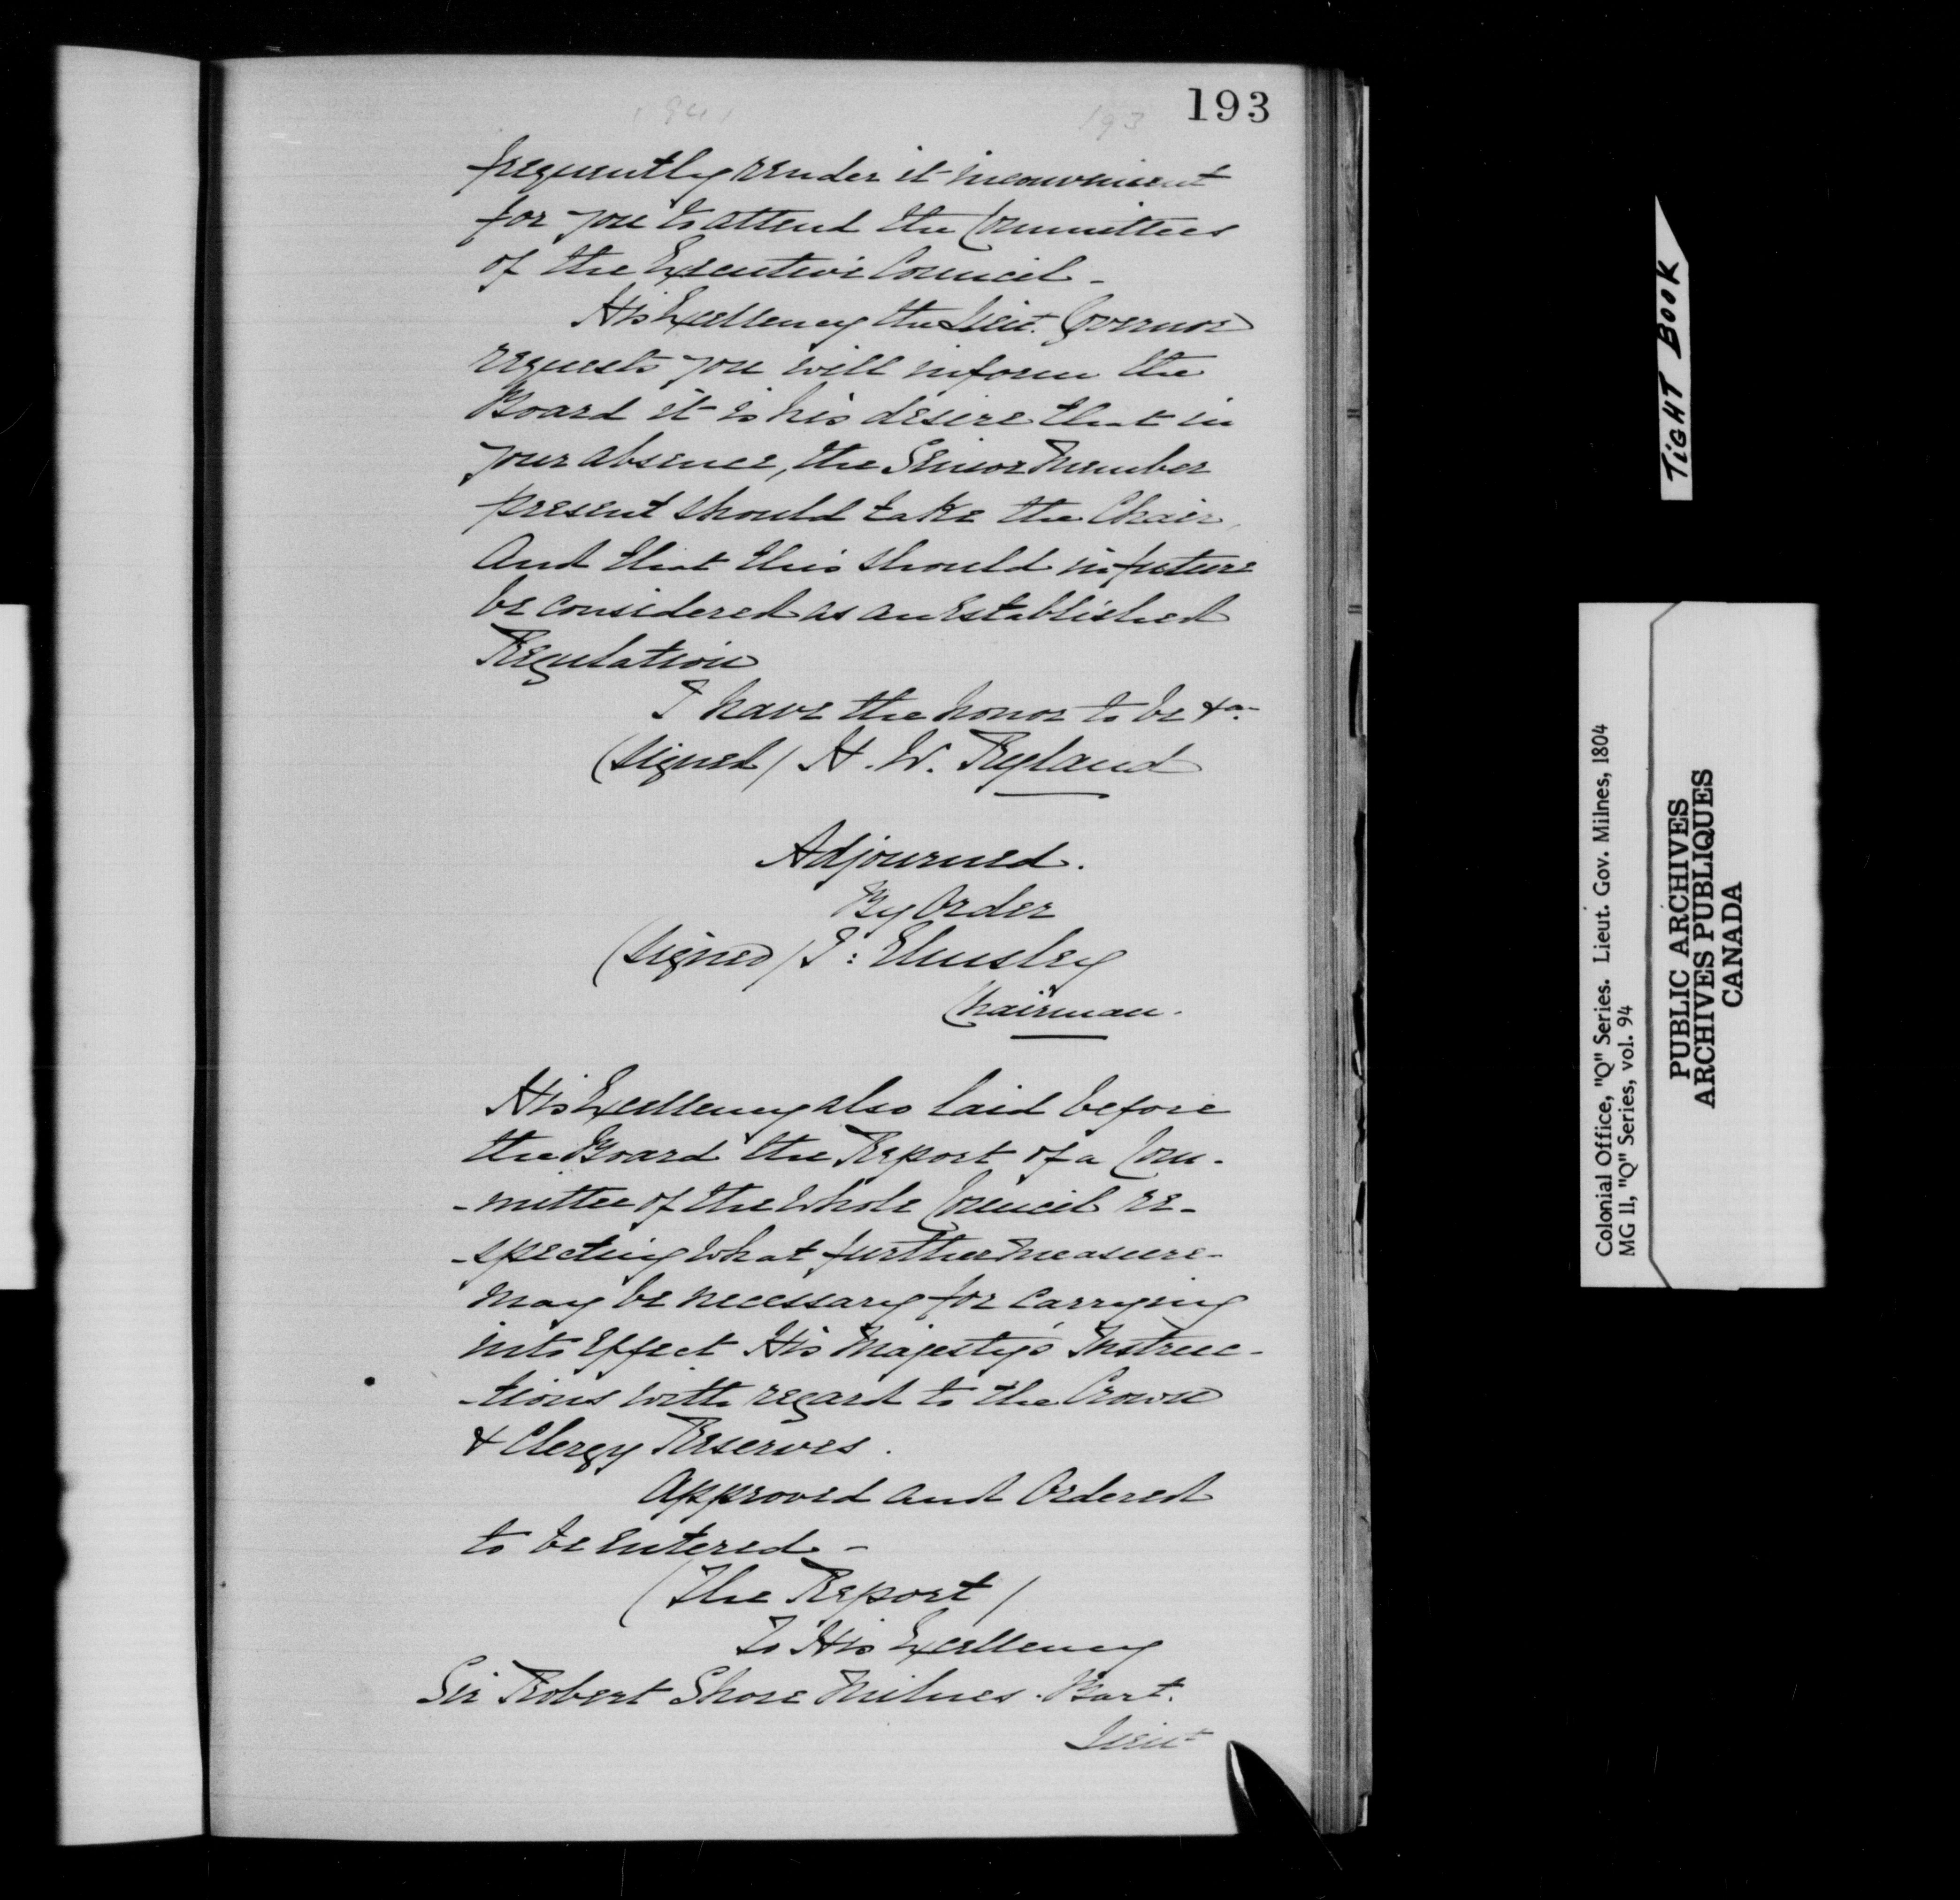 193
193
frequently render it inconvenient
for you to attend the Committees
of the Executive Council -
His Excellency the Lieut. Governor
requests you will inform the
Board it is his desire that in
your absence, the Senior Member
present should take the Chair,
And that this should in future
be considered as an Established
Regulation
I have the honor to be &a.
(signed) H. W. Ryland
Adjourned.
By Order
(signed) J: Elmsley
Chairman.
His Excellency also laid before
the Board the Report of a Com-
-mittee of the Whole Council re-
-specting what further measure-
may be necessary for carrying
into Effect His Majesty's Instruc-
-tions with regard to the Crown
& Clergy Reserves.
Approved and Ordered
to be entered -
(The Report)
To His Excellency
Sir Robert Shore Milnes. Bart.
Lieut
TIGHT BOOK
Colonial Office, "Q" Series. Lieut. Gov. Milnes, 1804
MG 11, "Q" Series, vol. 94
PUBLIC ARCHIVES
ARCHIVES PUBLIQUES
CANADA